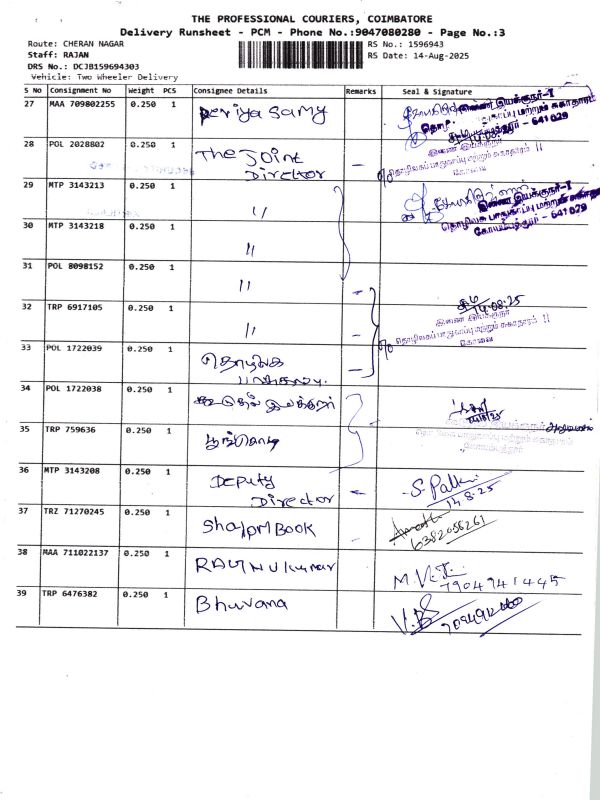 THE PROFESSIONAL COURIERS, COIMBATORE
Delivery Runsheet - PCM - Phone No.:9047080280 - Page No.:3
Route: CHERAN NAGAR RS No.: 1596943
Staff: RAJAN RS Date: 14-Aug-2025
DRS No.: DCJB159694303
Vehicle: Two Wheeler Delivery
S No Consignment No Weight PCS Consignee Details Remarks Seal & Signature
27 MAA 709802255 0.250 1 Periyasamy
இணை இயக்குநர்-I
கோயம்புத்தூர் - 641029
28 POL 2028802 0.250 1 The Joint
Director -
இணை இயக்குநர்
தொழிலகப் பாதுகாப்பு மற்றும் சுகாதாரம் II
கோவை
29 MTP 3143213 0.250 1 "
இணை இயக்குநர்-I
தொழிலக பாதுகாப்பு மற்றும்
கோயம்புத்தூர் - 641029
30 MTP 3143218 0.250 1 "
31 POL 8098152 0.250 1 " -
32 TRP 6917105 0.250 1 " -
14.08.25
இணை இயக்குநர்
தொழிலகப் பாதுகாப்பு மற்றும் சுகாதாரம் II
கோவை
33 POL 1722039 0.250 1 தொழிலக -
34 POL 1722038 0.250 1
35 TRP 759636 0.250 1
36 MTP 3143208 0.250 1 Deputy
Director - 14.8.25
37 TRZ 71270245 0.250 1 Book
6382056261
38 MAA 711022137 0.250 1
7904941445
39 TRP 6476382 0.250 1 Bhuvana